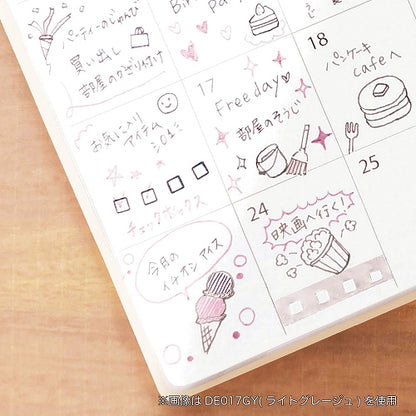 Bir
Pa
パーティーのじゅんび
買い出し
部屋のかざりつけ
17
Free day♡
部屋のそうじ
18
パンケーキ
cafeへ
お気に入り
アイテム
チェックボックス
24
映画へ行く!
25
今月の
イチオシ アイス
※画像は DE017GY(ライトグレージュ)を使用